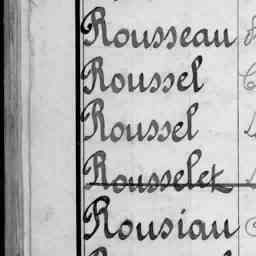 Rousseau
Roussel
Roussel
Rousselet
Rousiau